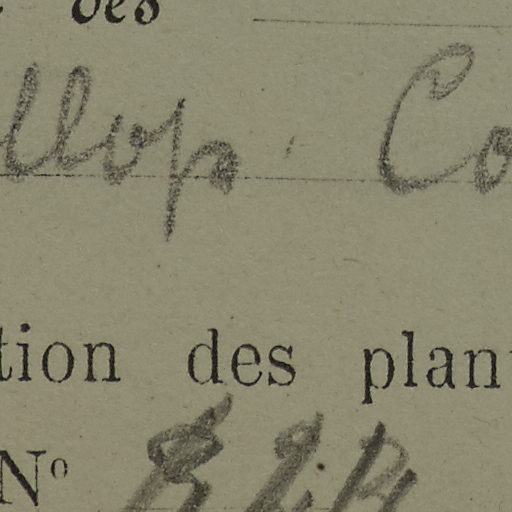 des
llop. Co
tion des plan
Nº